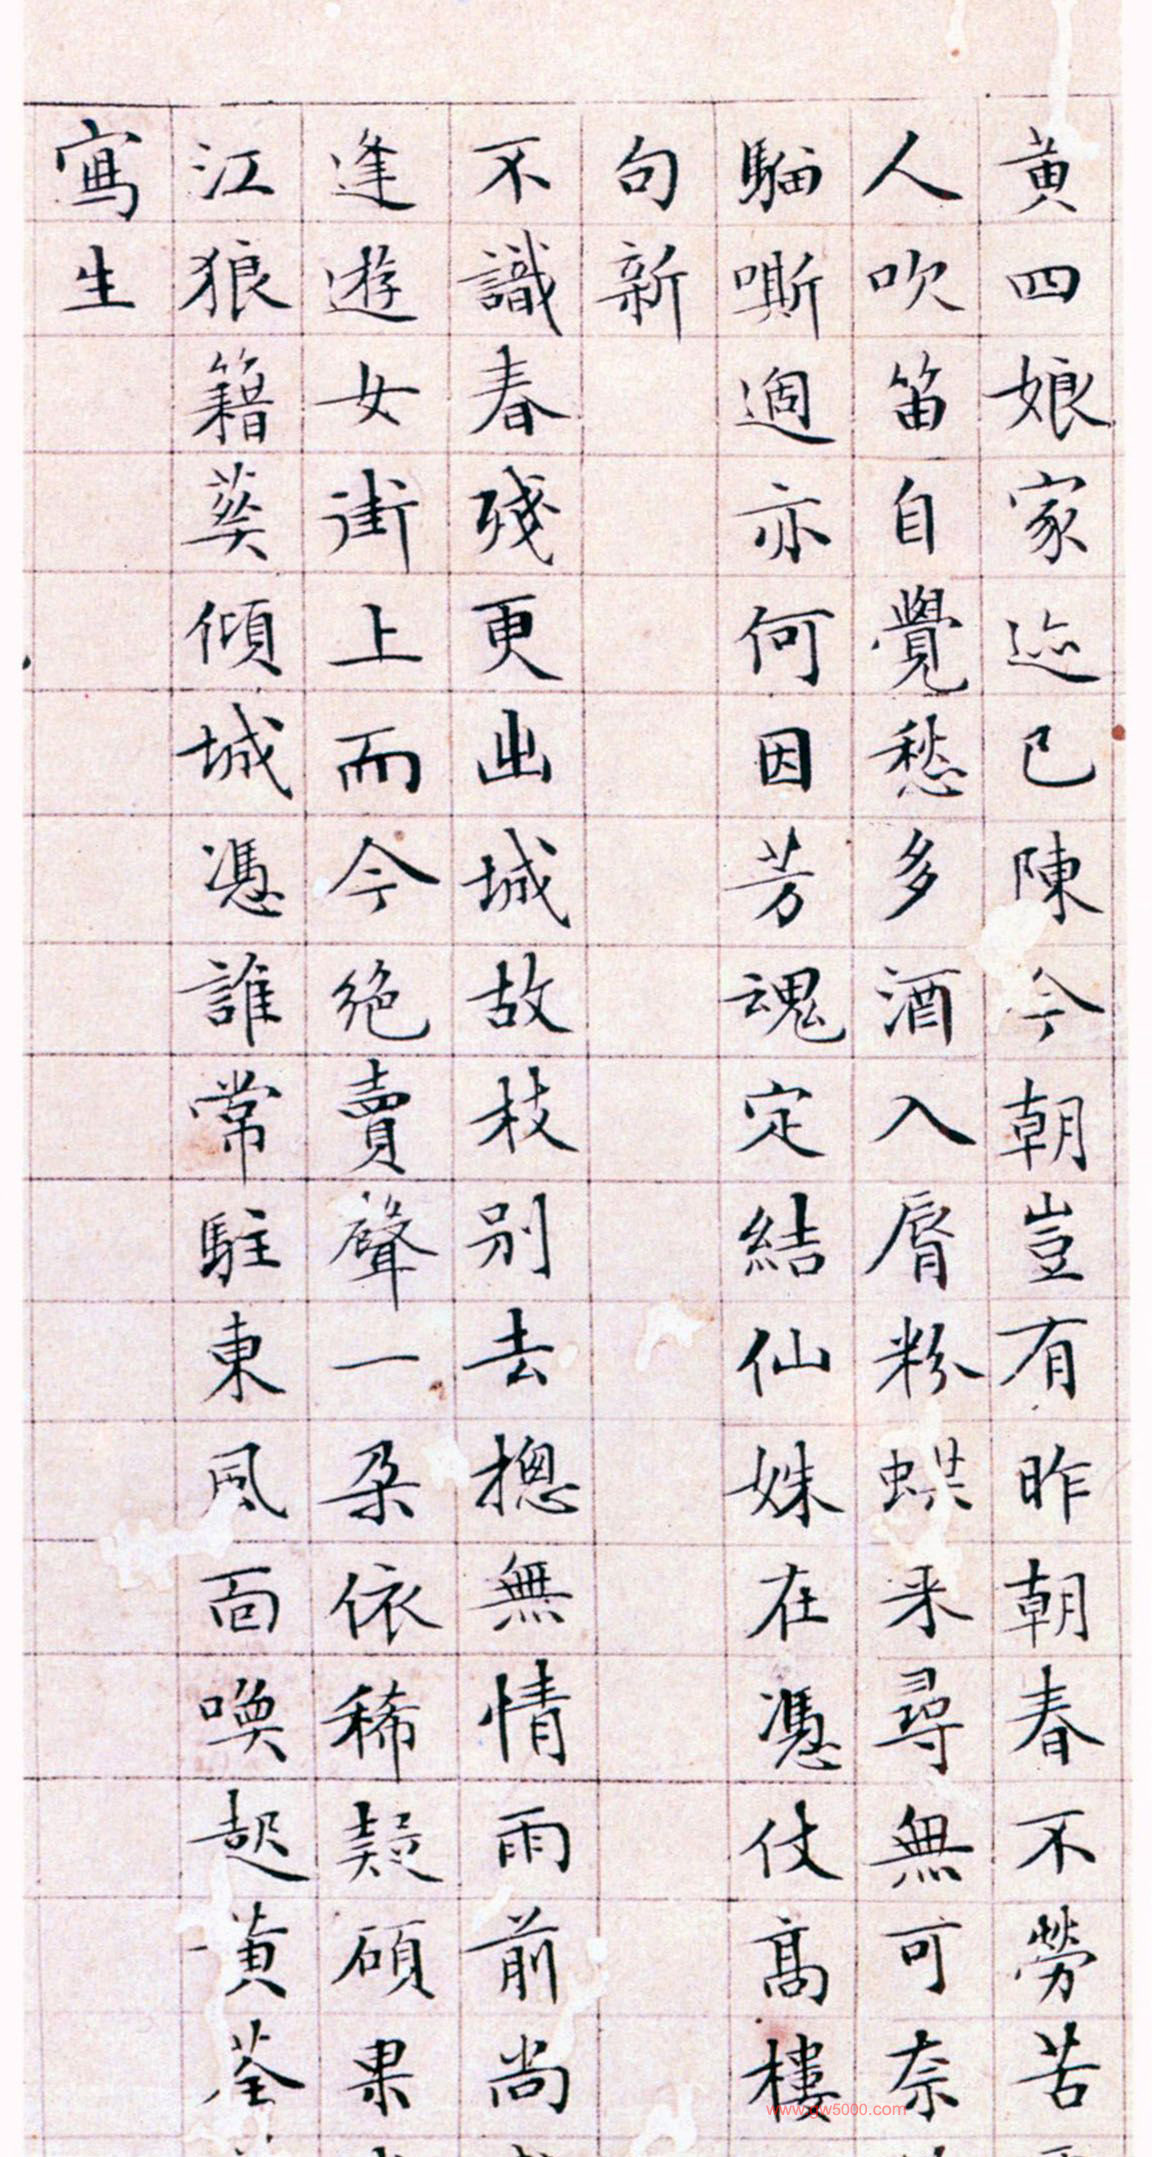 黄四娘家迹已陳今朝豈有昨朝春不勞苦
人吹笛自覺愁多酒入脣粉蜨来尋無可奈
騮嘶過亦何因芳魂定結仙姝在憑仗高樓
句新
不識春殘更出城故枝別去摠無情雨前尚
逢遊女街上而今絶賣聲一朶依稀疑碩果
江狼籍葵傾城憑誰常駐東風面喚起黄荃
寫生
www.gw5000.com